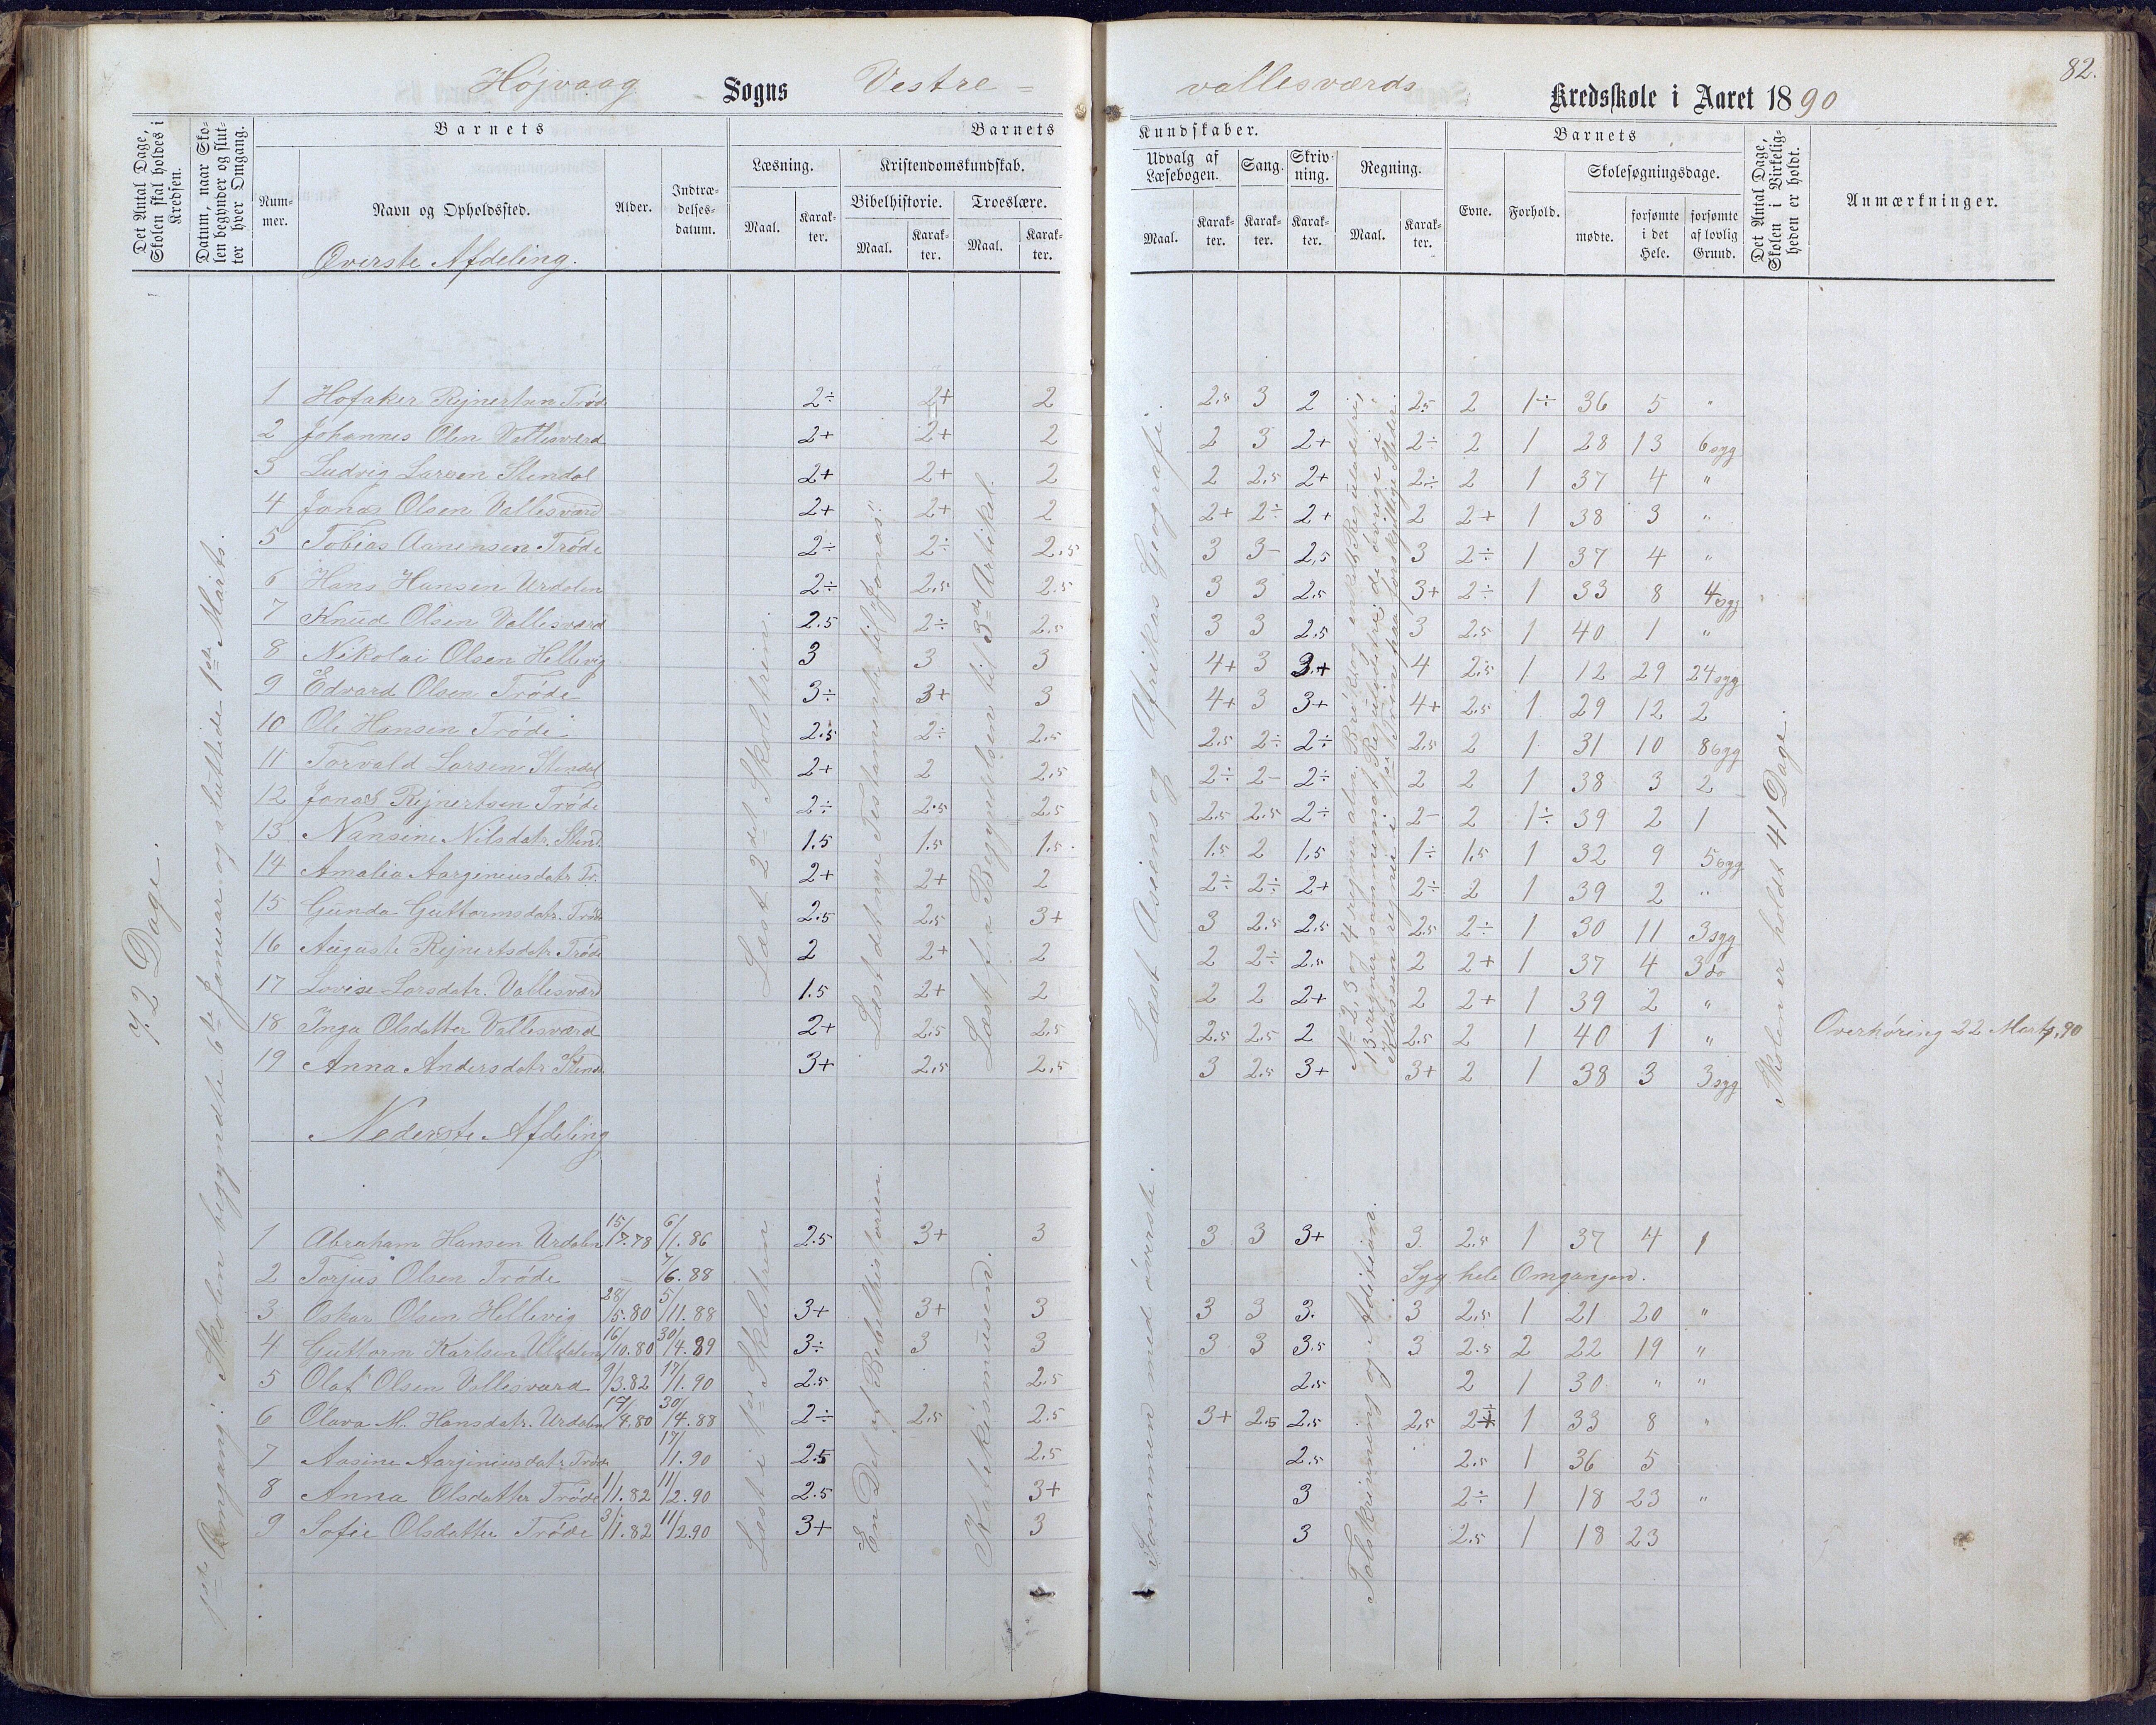 82.
Højvaag Sogns Vestre = vallesværds Kredsskole i Aaret 1890
Det Antal Dage, Skolen skal holdes i Kredsen.
Datum, naar Skolen begynder og slutter hver Omgang.
Barnets
Nummer.
Navn og Opholdssted.
Alder.
Indtrædelsesdatum.
Barnets Kundskaber.
Læsning.
Maal. Karakter.
Kristendomskundskab.
Bibelhistorie. Troeslære.
Maal. Karakter. Maal. Karakter.
Udvalg af Læsebogen. Sang. Skrivning. Regning.
Maal. Karakter. Karakter. Karakter. Maal. Karakter.
Barnets
Evne. Forhold. Skolesøgningsdage.
mødte. forsømte i det Hele. forsømte af lovlig Grund.
Det Antal Dage, Skolen i Virkeligheden er holdt.
Anmærkninger.
Øverste Afdeling.
72 Dage.
1ste Omgang: Skolen begyndte 6te Januar og sluttede 1ste Marts.
Læst 2det Skoletrin.
Læst det nye Testamente til "Jonas".
Læst fra Begyndelsen til 3die Artikel.
Læst Asiens og Afrikas Geografi.
Skolen er holdt 41 Dage.
1 Hofaker Rejnertsen Trøde 2÷ 2+ 2 2.5 3 2 2.5 2 1÷ 36 5 "
2 Johannes Olsen Vallesværd 2+ 2+ 2 2 3 2+ 2÷ 2 1 28 13 6 syg
3 Ludvig Larsen Stendal 2+ 2+ 2 2 2.5 2+ 2÷ 2 1 37 4 "
4 Jonas Olsen Vallesværd 2+ 2+ 2 2+ 2÷ 2+ 2 2+ 1 38 3 "
5 Tobias Aanensen Trøde 2÷ 2÷ 2.5 3 3- 2.5 3 2÷ 1 37 4 "
6 Hans Hansen Urdalen 2÷ 2.5 2.5 3 3 2.5 3+ 2÷ 1 33 8 4 syg
7 Knud Olsen Vallesværd 2.5 2÷ 2.5 3 3 2.5 3 2.5 1 40 1 "
8 Nikolai Olsen Hellevig 3 3 3 4+ 3 3+ 4 2.5 1 12 29 24 syg
9 Edvard Olsen Trøde 3÷ 3+ 3 4+ 3 3+ 4+ 2.5 1 29 12 2
10 Ole Hansen Trøde 2.5 2÷ 2.5 2.5 2÷ 2÷ 2.5 2 1 31 10 8 syg
11 Torvald Larsen Stendal 2+ 2 2.5 2÷ 2- 2÷ 2 2 1 38 3 2
12 Jonas Rejnertsen Trøde 2÷ 2.5 2.5 2.5 2.5 2÷ 2- 2 1÷ 39 2 1
13 Nansine Nilsdatr. Stend. 1.5 1.5 1.5 1.5 2 1.5 1÷ 1.5 1 32 9 5 syg
14 Amalia Aargineusdatr Tr. 2+ 2+ 2 2÷ 2÷ 2+ 2÷ 2 1 39 2 "
15 Gunda Guttormsdatr. Trøde 2.5 2.5 3+ 3 2.5 2.5 2.5 2÷ 1 30 11 3 syg
16 Auguste Rejnertsdatr. Trøde 2 2+ 2 2 2÷ 2.5 2 2+ 1 37 4 3 do
17 Lovise Larsdatr. Vallesværd 1.5 2+ 2 2 2 2+ 2 2+ 1 39 2 "
18 Inga Olsdatter Vallesværd 2+ 2.5 2.5 2.5 2.5 2 2.5 2 1 40 1 " Overhøring 22 Marts 90
19 Anna Andersdatr Stend. 3+ 2.5 2.5 3 2.5 3+ 3+ 2 1 38 3 3 syg
Nederste Afdeling
Læst i 1ste Skoletrin
En Del af Bibelhistorien.
Katekismusen.
Sammen med øverste.
Talskrivning og Addition.
1 Abraham Hansen Urdalen 15/7.78 6/1.86 2.5 3+ 3 3 3 3+ 3 2.5 1 37 4 1
2 Torjus Olsen Trøde 7/6.88 Syg hele Omgangen.
3 Oskar Olsen Hellevig 28/5.80 5/11.88 3+ 3+ 3 3 3 3. 3 2.5 1 21 20 "
4 Guttorm Karlsen Uldalen 16/10.80 30/4.89 3÷ 3 3 3 3 3.5 3 2.5 2 22 19 "
5 Olaf Olsen Vallesværd 9/3.82 17/1.90 2.5 2.5 2.5 2 1 30 " "
6 Olava M. Hansdatr. Urdalen 17/4.80 30/4.88 2÷ 2.5 2.5 3+ 2.5 2.5 2.5 2÷ 1 33 8 "
7 Aasine Aargineusdatr Trøde 17/1.90 2.5 2.5 2.5 2.5 1 36 5
8 Anna Olsdatter Trøde 1/1.82 11/2.90 2.5 3+ 3 2÷ 1 18 23 "
9 Sofie Olsdatter Trøde 3/1.82 11/2.90 3+ 3 3 2.5 1 18 23